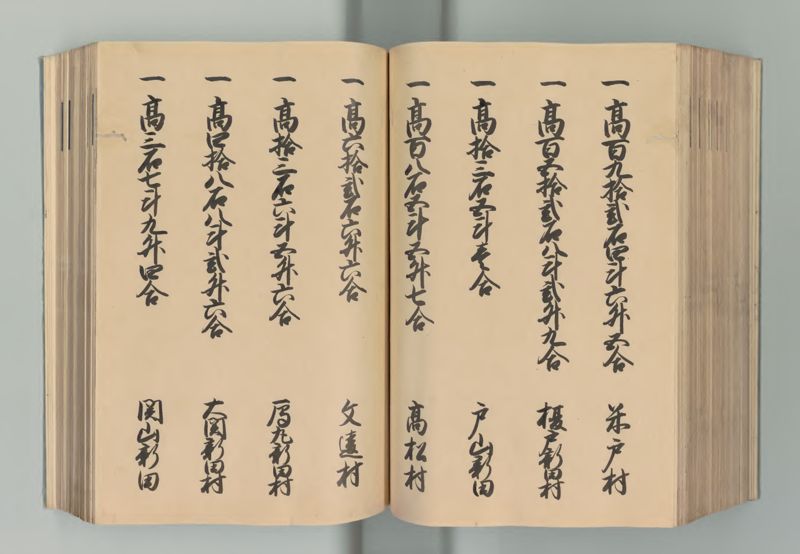 一 高百九拾弐石四斗六升五合 茱戸村
一 高百五拾弐石八斗弐升九合 榎戸新田村
一 高拾三石五斗壱合 戸山新田
一 高百八石五斗五升七合 高松村
一 高六拾弐石六升六合 文遠村
一 高拾三石六斗五升六合 丸新田村
一 高四拾八石八斗弐升六合 大関新田村
一 高三石七斗九升四合 関山新田